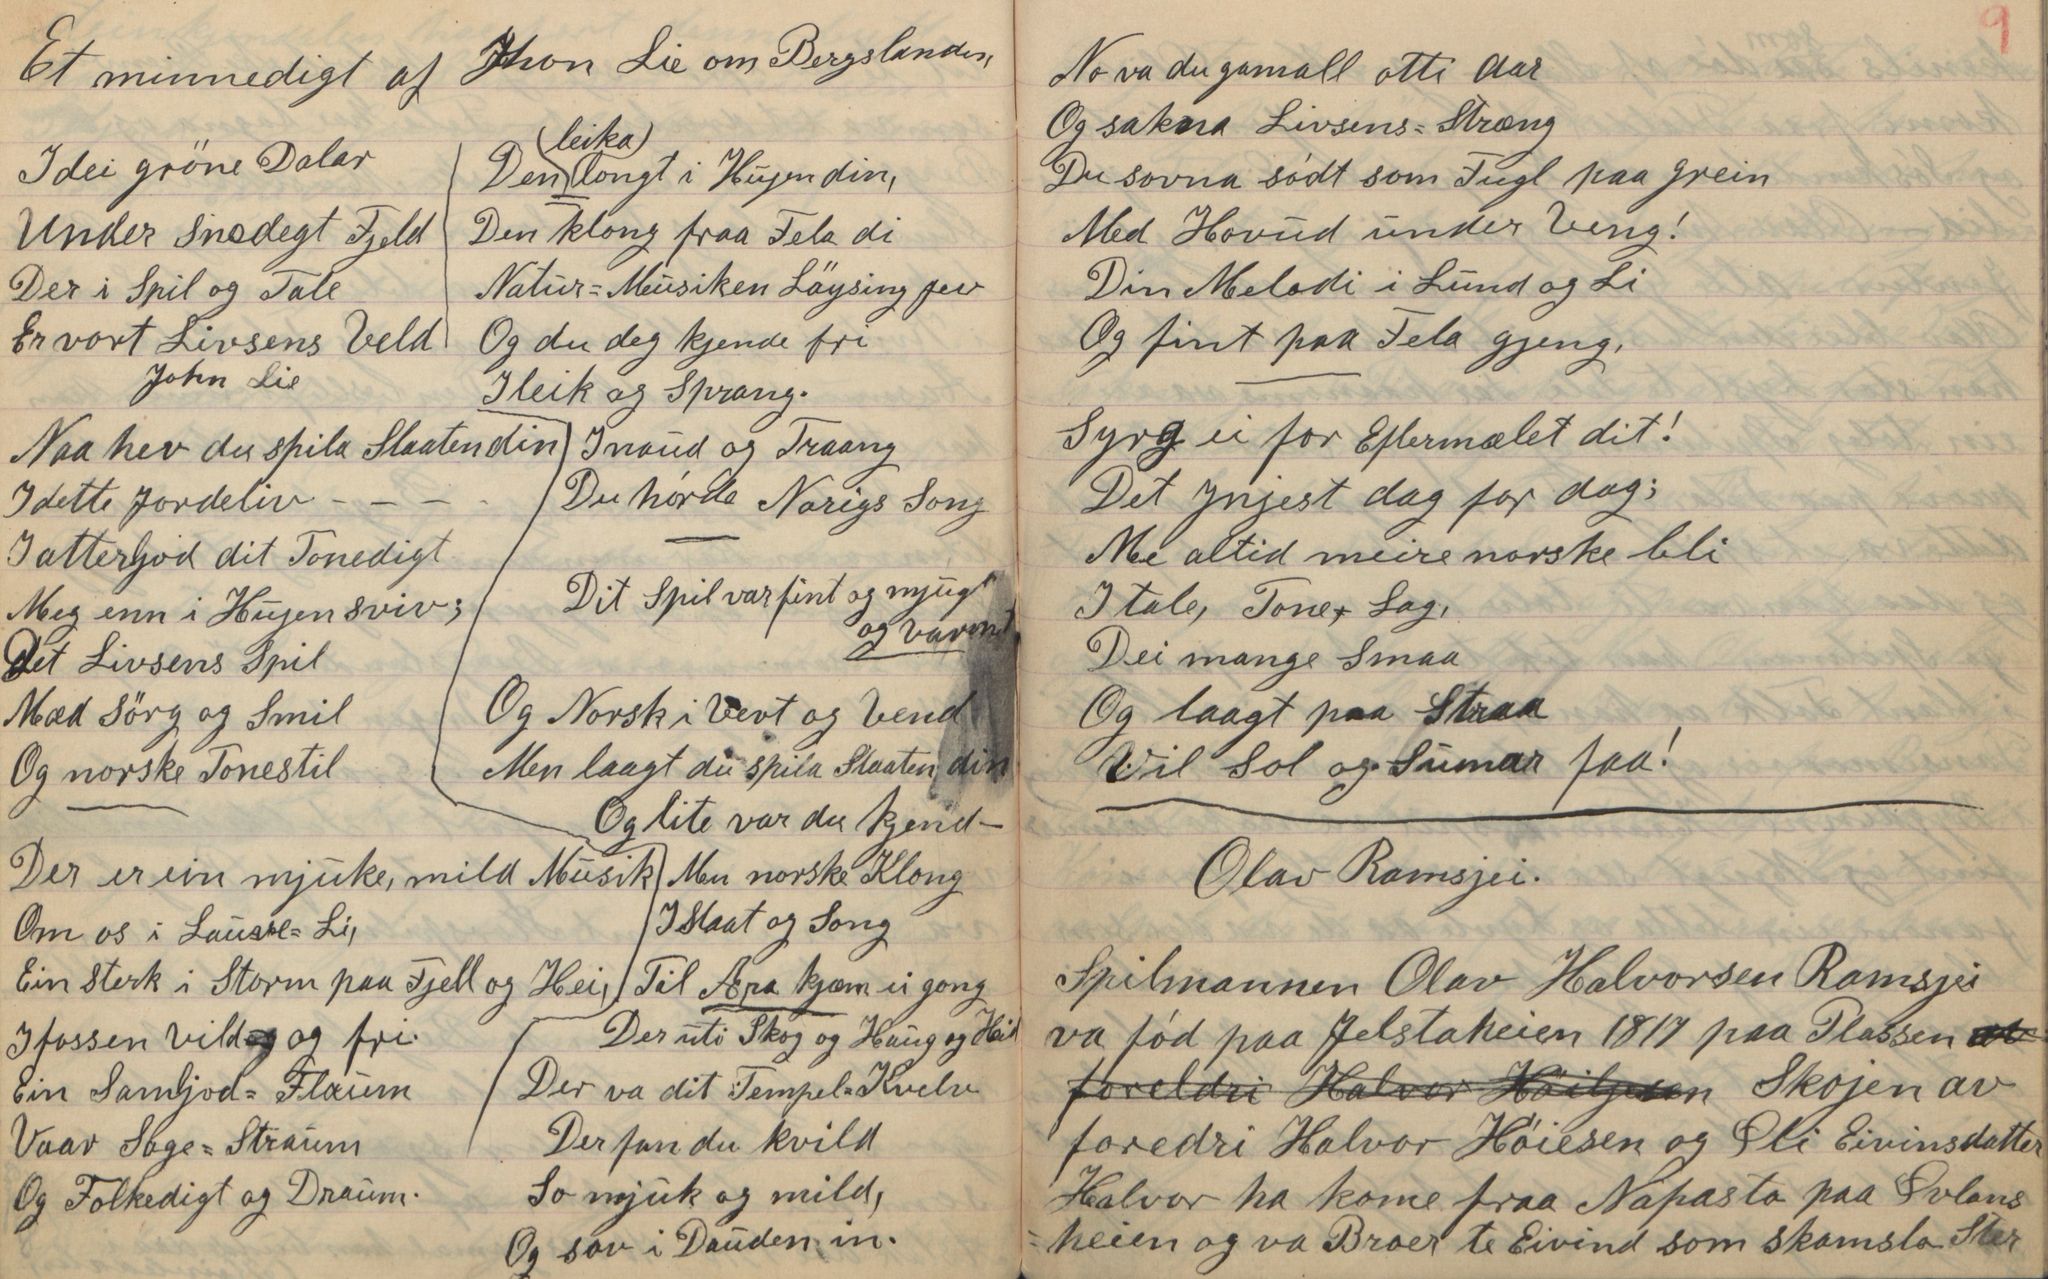 Et minnedigt af Jhon Lie om Bergslanden,
I dei gröne Dalar
Under Snedegt Fjeld
Der i Spil og Tale
Er vort Livsens Veld
John Lie
Naa hev du spila Slaaten din
I dette Jordeliv - - - -
I atterljod dit Tonedigt
Meg enn i Hugen sviv;
Det Livsens Spil
Mæd Sörg og Smil
Og norske Tonestil
Der er ein mjuke, mild Musik
Om os i Lauvse= Li,
Ein sterk i Storm paa Fjell og Hei,
I fossen vild og fri.
Ein Samljod= Flaum
Vaar Soge= Straum
Og Folkedigt og Draum.
(leika)
Den longt i Hugen din,
Den klong fraa Fela di
Natur= Musiken Löysing fev
Og du deg kjende fri
I leik og Sprang.
I naud og Traang
Du hörde Norigs Song
Dit Spil var fint og mjugt
og varmt
Og Norsk i Vert og Vend
Men laagt du spila Slaaten din
Og lite var du kjend-
Men norske Klong
I Slaat og Song
Til Æra kjæm ei gong
Der uti Skog og Haug og Heid
Der va dit Tempel= Kvelv
Der fan du kvild
So mjuk og mild,
Og sov i Dauden in.
9
No va du gamall otti Aar
Og sakna Livsens= Stræng
Du sovna södt som Fugl paa grein
Med Hovud under Veng!
Din Melodi i Lund og Li
Og fint paa Fela gjeng,
Syrg ei for Eftermælet dit!
Det ynjest dag for dag;
Me altid meire norske bli
I tale, Tone, Lag,
Dei mange Smaa
Og laagt paa Straa
Vil Sol og Sumar faa!
Olav Ramsjei.
Spilmannen Olav Halvorsen Ramsjei
va född paa Jelstaheien 1817 paa Plassen
foreldri Halvor Höiljesen Skojen av
foredri Halvor Höiesen og Oli Eivinsdatter
Halvor ha kome fraa Napasta paa Ovlans
=heien og va Broer te Eivind som skamslo Ster